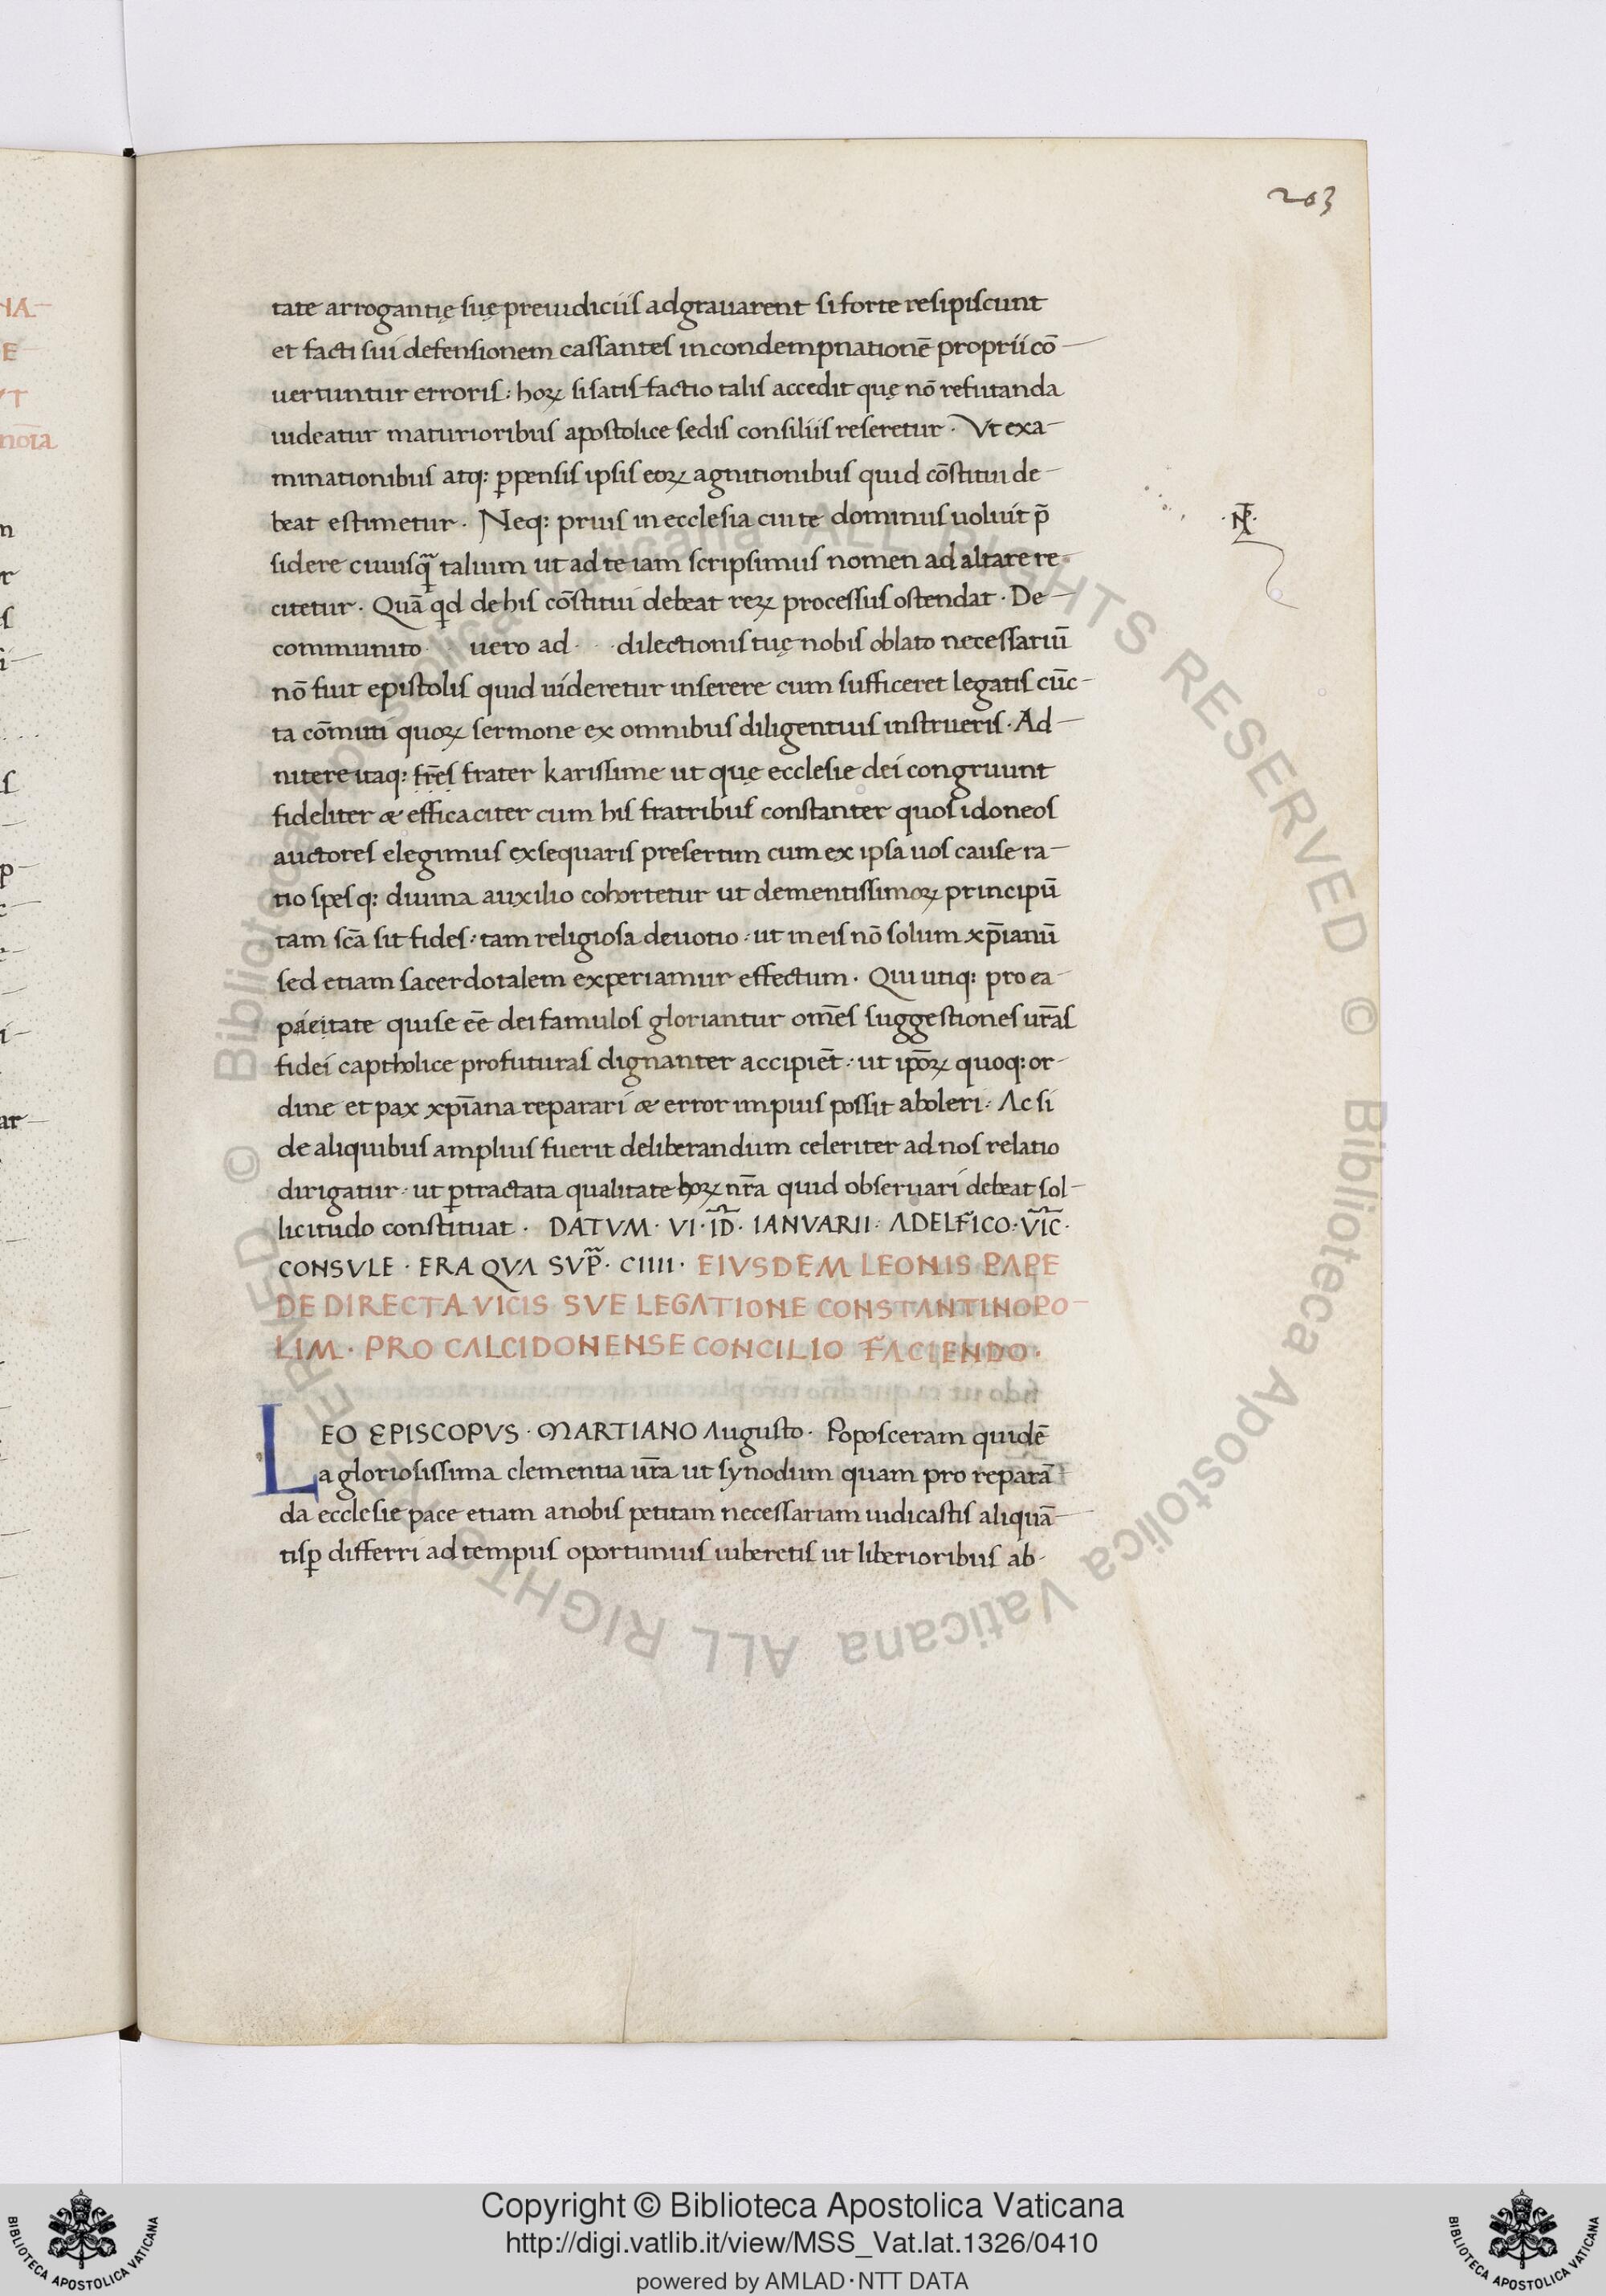 203
tate arrogantię suę preiudiciis adgrauarent si forte resipiscunt
et facti sui defensionem cassantes in condempnationē proprii cō
uertuntur erroris: hoꝝ si satisfactio talis accedit quę nō refutanda
uideatur maturioribus apostolice sedis consiliis reseretur. Vt exa
minationibus atq: ꝑpensis ipsis eoꝝ agnitionibus quid cōstitui de
beat estimetur. Neq: prius in ecclesia cui te dominus uoluit p̄
sidere cuiusq̄ talium ut ad te iam scripsimus nomen ad altare re
citetur. Quā qd de his cōstitui debeat reꝝ processus ostendat. De
communito uero ad dilectionis tuę nobis oblato necessariū
nō fuit epistolis quid uideretur inserere cum sufficeret legatis cūc
ta cōmitti quoꝝ sermone ex omnibus diligentius instrueris. Ad
nitere itaq: fr̄es frater karissime ut quę ecclesie dei congruunt
fideliter æ efficaciter cum his fratribus constanter quos idoneos
auctores elegimus exsequaris presertim cum ex ipsa uos cause ra
tio spesq: diuina auxilio cohortetur ut dementissimoꝝ principū
tam sc̄a sit fides: tam religiosa deuotio: ut in eis nō solum xp̄ianū
sed etiam sacerdotalem experiamur effectum. Qui utiq: pro ea
paeitate qui se ēe dei famulos gloriantur om̄es suggestiones ur̄as
fidei captholice profuturas dignanter accipiēt: ut ipōꝝ quoq: or
dine et pax xp̄iana reparari æ error impius possit aboleri: Ac si
de aliquibus amplius fuerit deliberandum celeriter ad nos relatio
dirigatur. ut ꝑtractata qualitate hoꝝ nr̄a quid obseruari debeat sol
licitudo constituat. DATVM. VI. ID̄. IANVARII: ADELFICO. VIC̄.
CONSVLE. ERA QVA SVP̄. CIIII. EIVSDEM LEONIS PAPE
DE DIRECTA VICIS SVE LEGATIONE CONSTANTINOPO
LIM. PRO CALCIDONENSE CONCILIO FACIENDO.
LEO EPISCOPVS. MARTIANO Augusto. Poposceram quidē
a gloriosissima clementia ur̄a ut synodum quam pro reparā
da ecclesie pace etiam a nobis petitam necessariam iudicastis aliquā
tisꝑ differri ad tempus oportunius iuberetis ut liberioribus ab
© Biblioteca Apostolica Vaticana ALL RIGHTS RESERVED © Biblioteca Apostolica Vaticana ALL RIGHTS RESERVED
Copyright © Biblioteca Apostolica Vaticana
http://digi.vatlib.it/view/MSS_Vat.lat.1326/0410
powered by AMLAD·NTT DATA
BIBLIOTECA APOSTOLICA VATICANA
BIBLIOTECA APOSTOLICA VATICANA